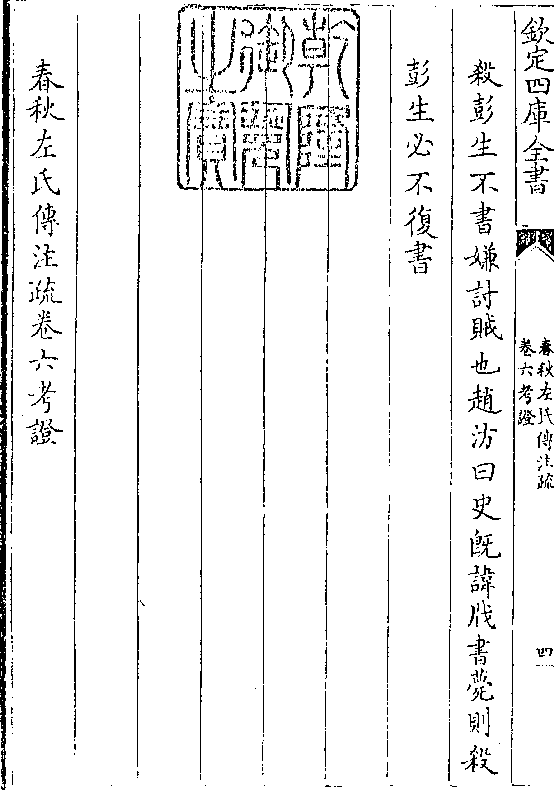 欽定四庫全書
春秋左氏傳注疏
卷六考證
四
殺彭生不書嫌討賊也趙汸曰史旣諱戕書薨則殺
彭生必不復書
乾隆御覽之寶
春秋左氏傳注疏卷六考證